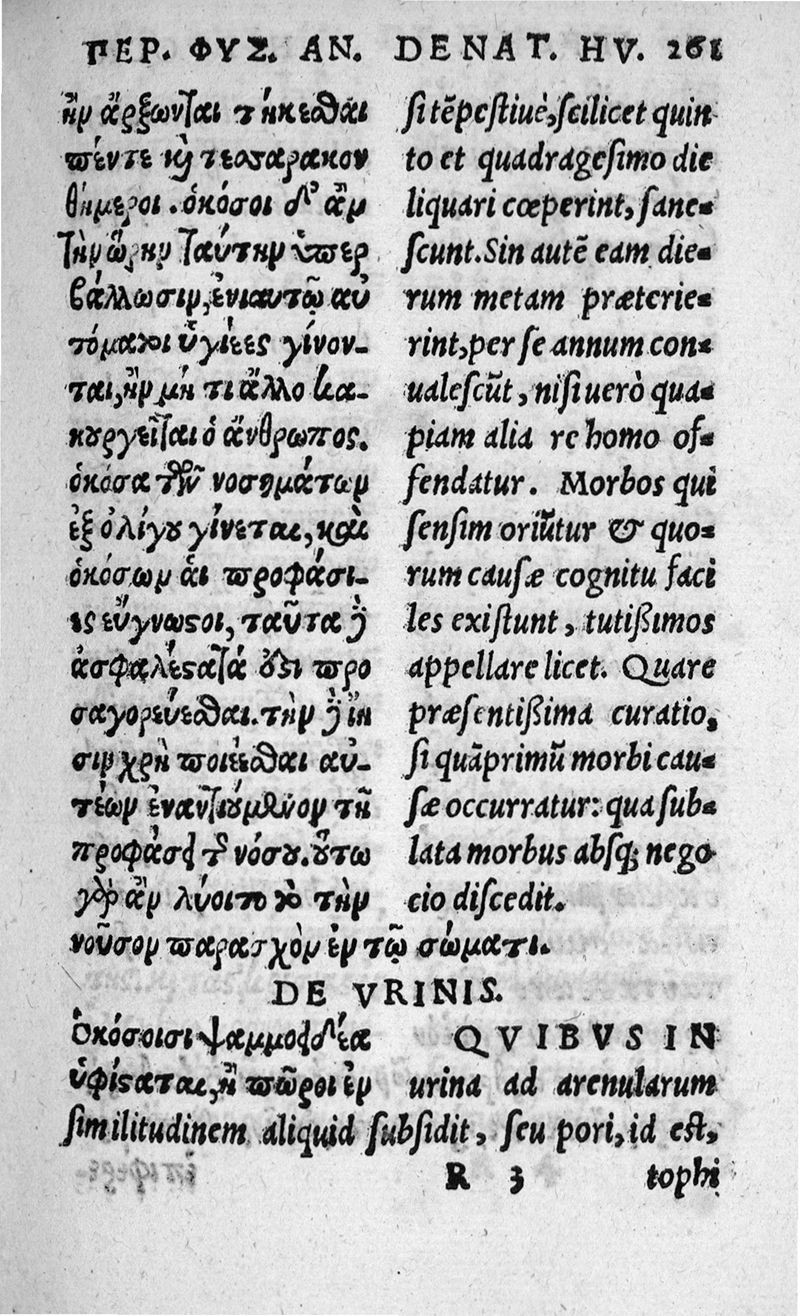 ΠΕΡ. ΦΥΣ. ΑΝ. DE NAT. HV. 261
ἢν ἄρξωνται τήκεσθαι
πέντε καὶ τεσσαρακον
θήμεροι. ὁκόσοι δ' ἂν
τὴν ὥρην ταύτην ὑπερ
βάλλωσιν, ἐνιαυτῷ αὐ
τόματοι ὑγιέες γίνον-
ται, ἢν μή τι ἄλλο κα-
κουργεῖται ὁ ἄνθρωπος.
ὁκόσα τῶν νοσημάτων
ἐξ ὀλίγου γίνεται, καὶ
ὁκόσων αἱ προφάσι-
ες εὔγνωστοι, ταῦτα δὲ
ἀσφαλέστατά ἐστι προ
σαγορεύεσθαι. τὴν δὲ ἴη
σιν χρὴ ποιέεσθαι αὐ-
τέων ἐναντιούμενον τῇ
προφάσει τῆς νόσου. οὕτω
γὰρ ἂν λύοιτο τὸ τὴν
νοῦσον παρασχὸν ἐν τῷ σώματι.
si tēpestiuè, scilicet quin
to et quadragesimo die
liquari cœperint, sane-
scunt. Sin autē eam die-
rum metam præterie-
rint, per se annum con-
ualescūt, nisi uerò qua-
piam alia re homo of-
fendatur. Morbos qui
sensim oriūtur & quo-
rum causæ cognitu faci
les existunt, tutißimos
appellare licet. Quare
præsentißima curatio,
si quāprimū morbi cau-
sæ occurratur: qua sub-
lata morbus absq; nego
cio discedit.
DE VRINIS.
Ὁκόσοισι ψαμμοειδέα
ὑφίσταται, ἢ πῶροι ἐν
QVIBVS IN
urina ad arenularum
similitudinem aliquid subsidit, seu pori, id est,
R 3 tophi